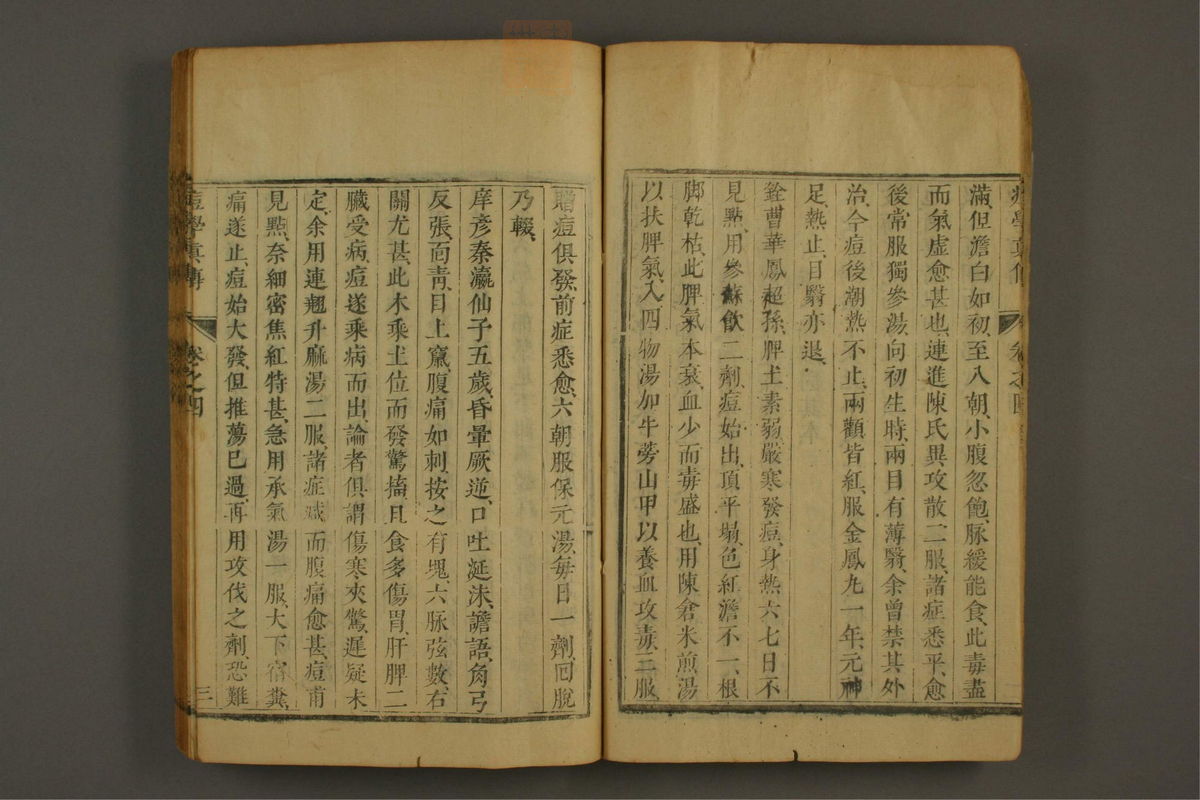 滿但澹白如初、至八朝、小腹忽飽、脉緩能食、此毒盡
而氣虛愈甚也、連進陳氏異攻散二服、諸症悉平、愈
後常服獨參湯、向初生時、兩目有薄翳、余曾禁其外
治、今痘後潮熱不止、兩顴皆紅、服金鳳九一年、元神
足、熱止、目翳亦退、
銓曹華鳳超孫、脾土素弱、嚴寒發痘、身熱六七日不
見點、用參蘇飲二劑、痘始出、頂平塌、色紅澹不一、根
脚乾枯、此脾氣本衰、血少而毒盛也、用陳倉米煎湯
以扶脾氣、入四物湯加牛蒡山甲以養血攻毒、三服
卷之四
贈痘俱發、前症悉愈、六朝服保元湯、每日一劑、回脫
乃輟、
庠彥秦瀛仙子五歲、昏暈厥逆、口吐涎沫、譫語、角弓
反張、面靑、目上竄、腹痛如刺、按之有塊、六脉弦數、右
關尤甚、此木乘土位而發驚搐、且食多傷胃、肝脾二
臟受病、痘遂乘病而出、論者俱謂傷寒夾驚、遲疑未
定、余用連翹升麻湯二服、諸症減而腹痛愈甚、痘甫
見點、奈細密焦紅特甚、急用承氣湯一服、大下宿糞、
痛遂止、痘始大發、但推蕩已過、再用攻伐之劑、恐難
痘學眞傳
卷之四
三